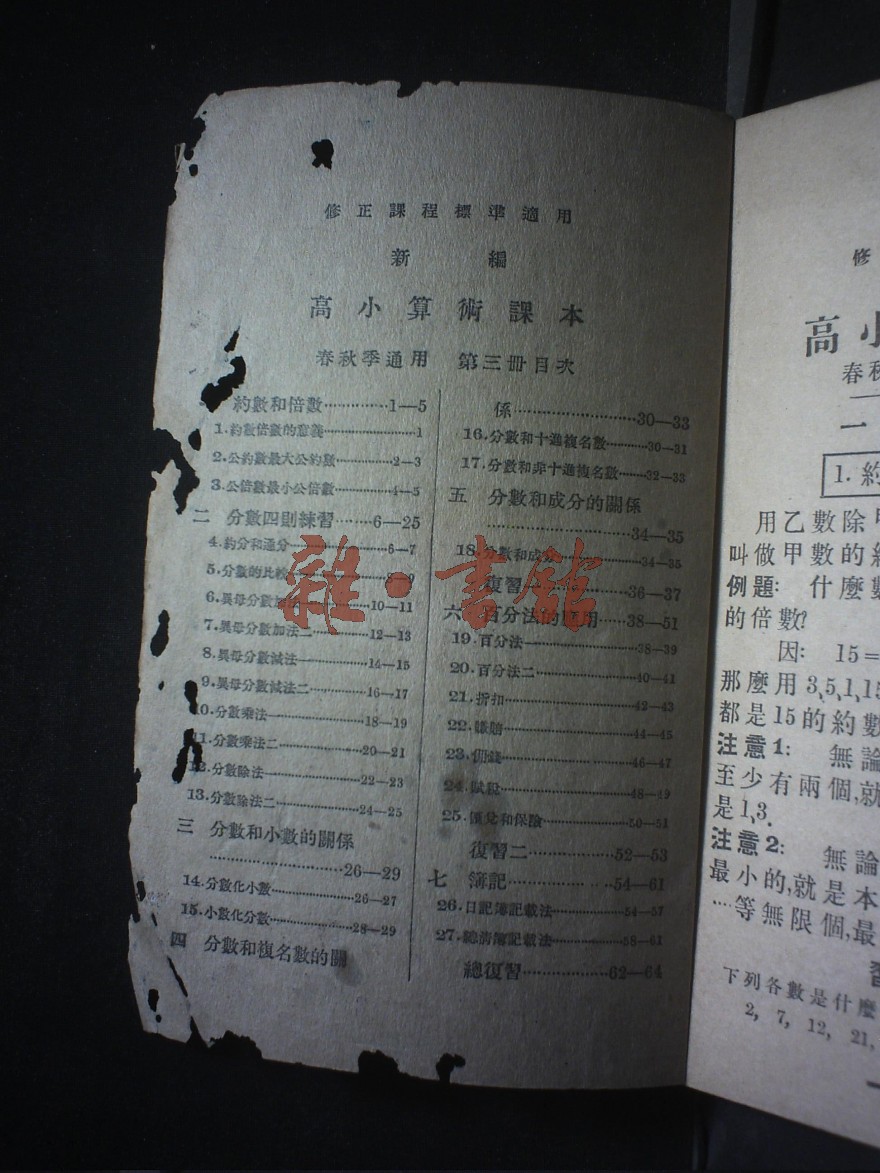 修正課程標準適用
新編
高小算術課本
春秋季通用 第三冊目次
約數和倍數…………1—5
1.約數倍數的意義…………1
2.公約數最大公約數…………2—3
3.公倍數最小公倍數…………4—5
二 分數四則練習……6—25
4.約分和通分…………6—7
5.分數的比較…………8—9
6.異母分數加法…………10—11
7.異母分數加法二…………12—13
8.異母分數減法…………14—15
9.異母分數減法二…………16—17
10.分數乘法…………18—19
11.分數乘法二…………20—21
12.分數除法…………22—23
13.分數除法二…………24—25
三 分數和小數的關係
…………26—29
14.分數化小數…………26—27
15.小數化分數…………28—29
四 分數和複名數的關
係…………30—33
16.分數和十進複名數…………30—31
17.分數和非十進複名數…………32—33
五 分數和成分的關係
…………34—35
18.分數和成分…………34—35
復習一…………36—37
六 百分法的應用……38—51
19.百分法…………38—39
20.百分法二…………40—41
21.折扣…………42—43
22.賺賠…………44—45
23.佣錢…………46—47
24.賦稅…………48—49
25.匯兌和保險…………50—51
復習二…………52—53
七 簿記…………54—61
26.日記簿記載法…………54—57
27.總清簿記載法…………58—61
總復習…………62—64
雜·書館
修
高小
春秋
一
1.約
用乙數除甲
叫做甲數的約
例題: 什麼數
的倍數?
因: 15=
那麼用3、5、1、15
都是15的約數
注意1: 無論
至少有兩個,就
是1、3.
注意2: 無論
最小的,就是本
…等無限個,最
習
下列各數是什麼
2, 7, 12, 21,